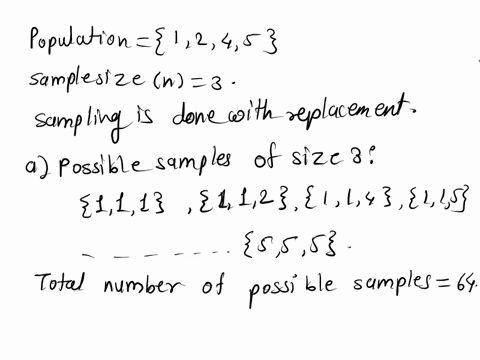 Population = {1, 2, 4, 5}
samplesize (n) = 3.
sampling is done with replacement.
a) Possible samples of size 3:
{1,1,1} , {1,1,2}, {1,1,4}, {1,1,5}
_ _ _ _ . . . . . . {5,5,5}.
Total number of possible samples = 64.